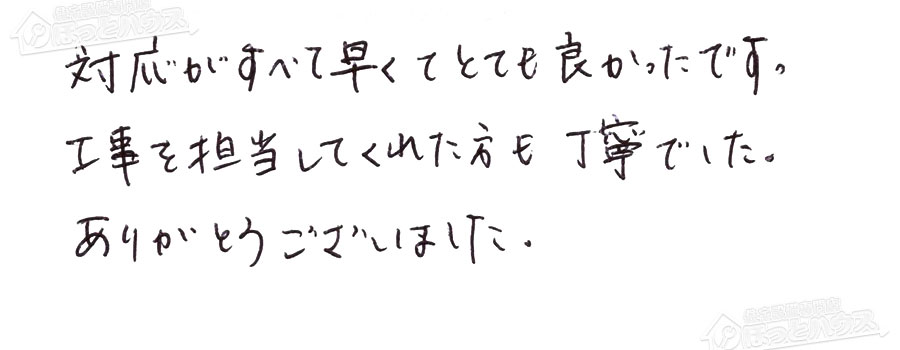 ほっとハウス
対応がすべて早くてとても良かったです。
工事を担当してくれた方も丁寧でした。
ありがとうございました。
ほっとハウス